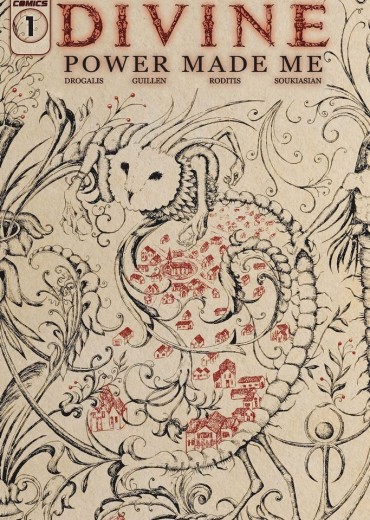 COMICS
1
DIVINE
POWER MADE ME
DROGALIS GUILLEN RODITIS SOUKIASIAN